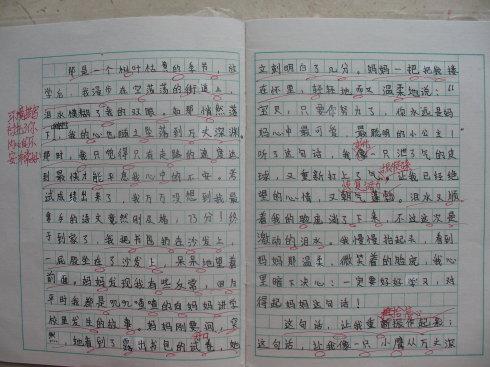 那是一个树叶枯黄的季节,放
学后,我漫步在空荡荡的街道上,
泪水模糊了我的双眼,如那悄然落
下,我的心也随之坠落到万丈深渊。
那时,我只觉得只有走路的速度达
到最快才能平息我心中的不安。考
试成绩出来了,我万万没想到我最
拿手的语文竟然刚及格,73分!终
于到家了,我把书包扔在沙发上,
一屁股坐在了沙发上,呆呆地望着
前面。妈妈发现我有些反常,因为
平时我都是叽叽喳喳的向妈妈讲学
校里发生的故事。妈妈刚要问,突
然,她看到了露出书包的试卷,她
立刻明白了几分。妈妈一把把我搂
在怀里,轻轻地而又温柔地说:“
宝贝,只要你努力了,你永远是妈
妈心中最可爱、最聪明的小公主!”
听了这句话,我像一只泄了气的皮
球,又重新打上了气。让我已经绝
望的心情,又朝气蓬勃。泪水又顺
着我的脸庞淌了下来,不过这次是
激动的泪水。我慢慢抬起头,看到
妈妈那温柔、微笑着的脸庞,我心
里暗下决心:一定要好好学习,对
得起妈妈这句话!
这句话,让我重新振作起来;
这句话,让我像一只小鹰从万丈深